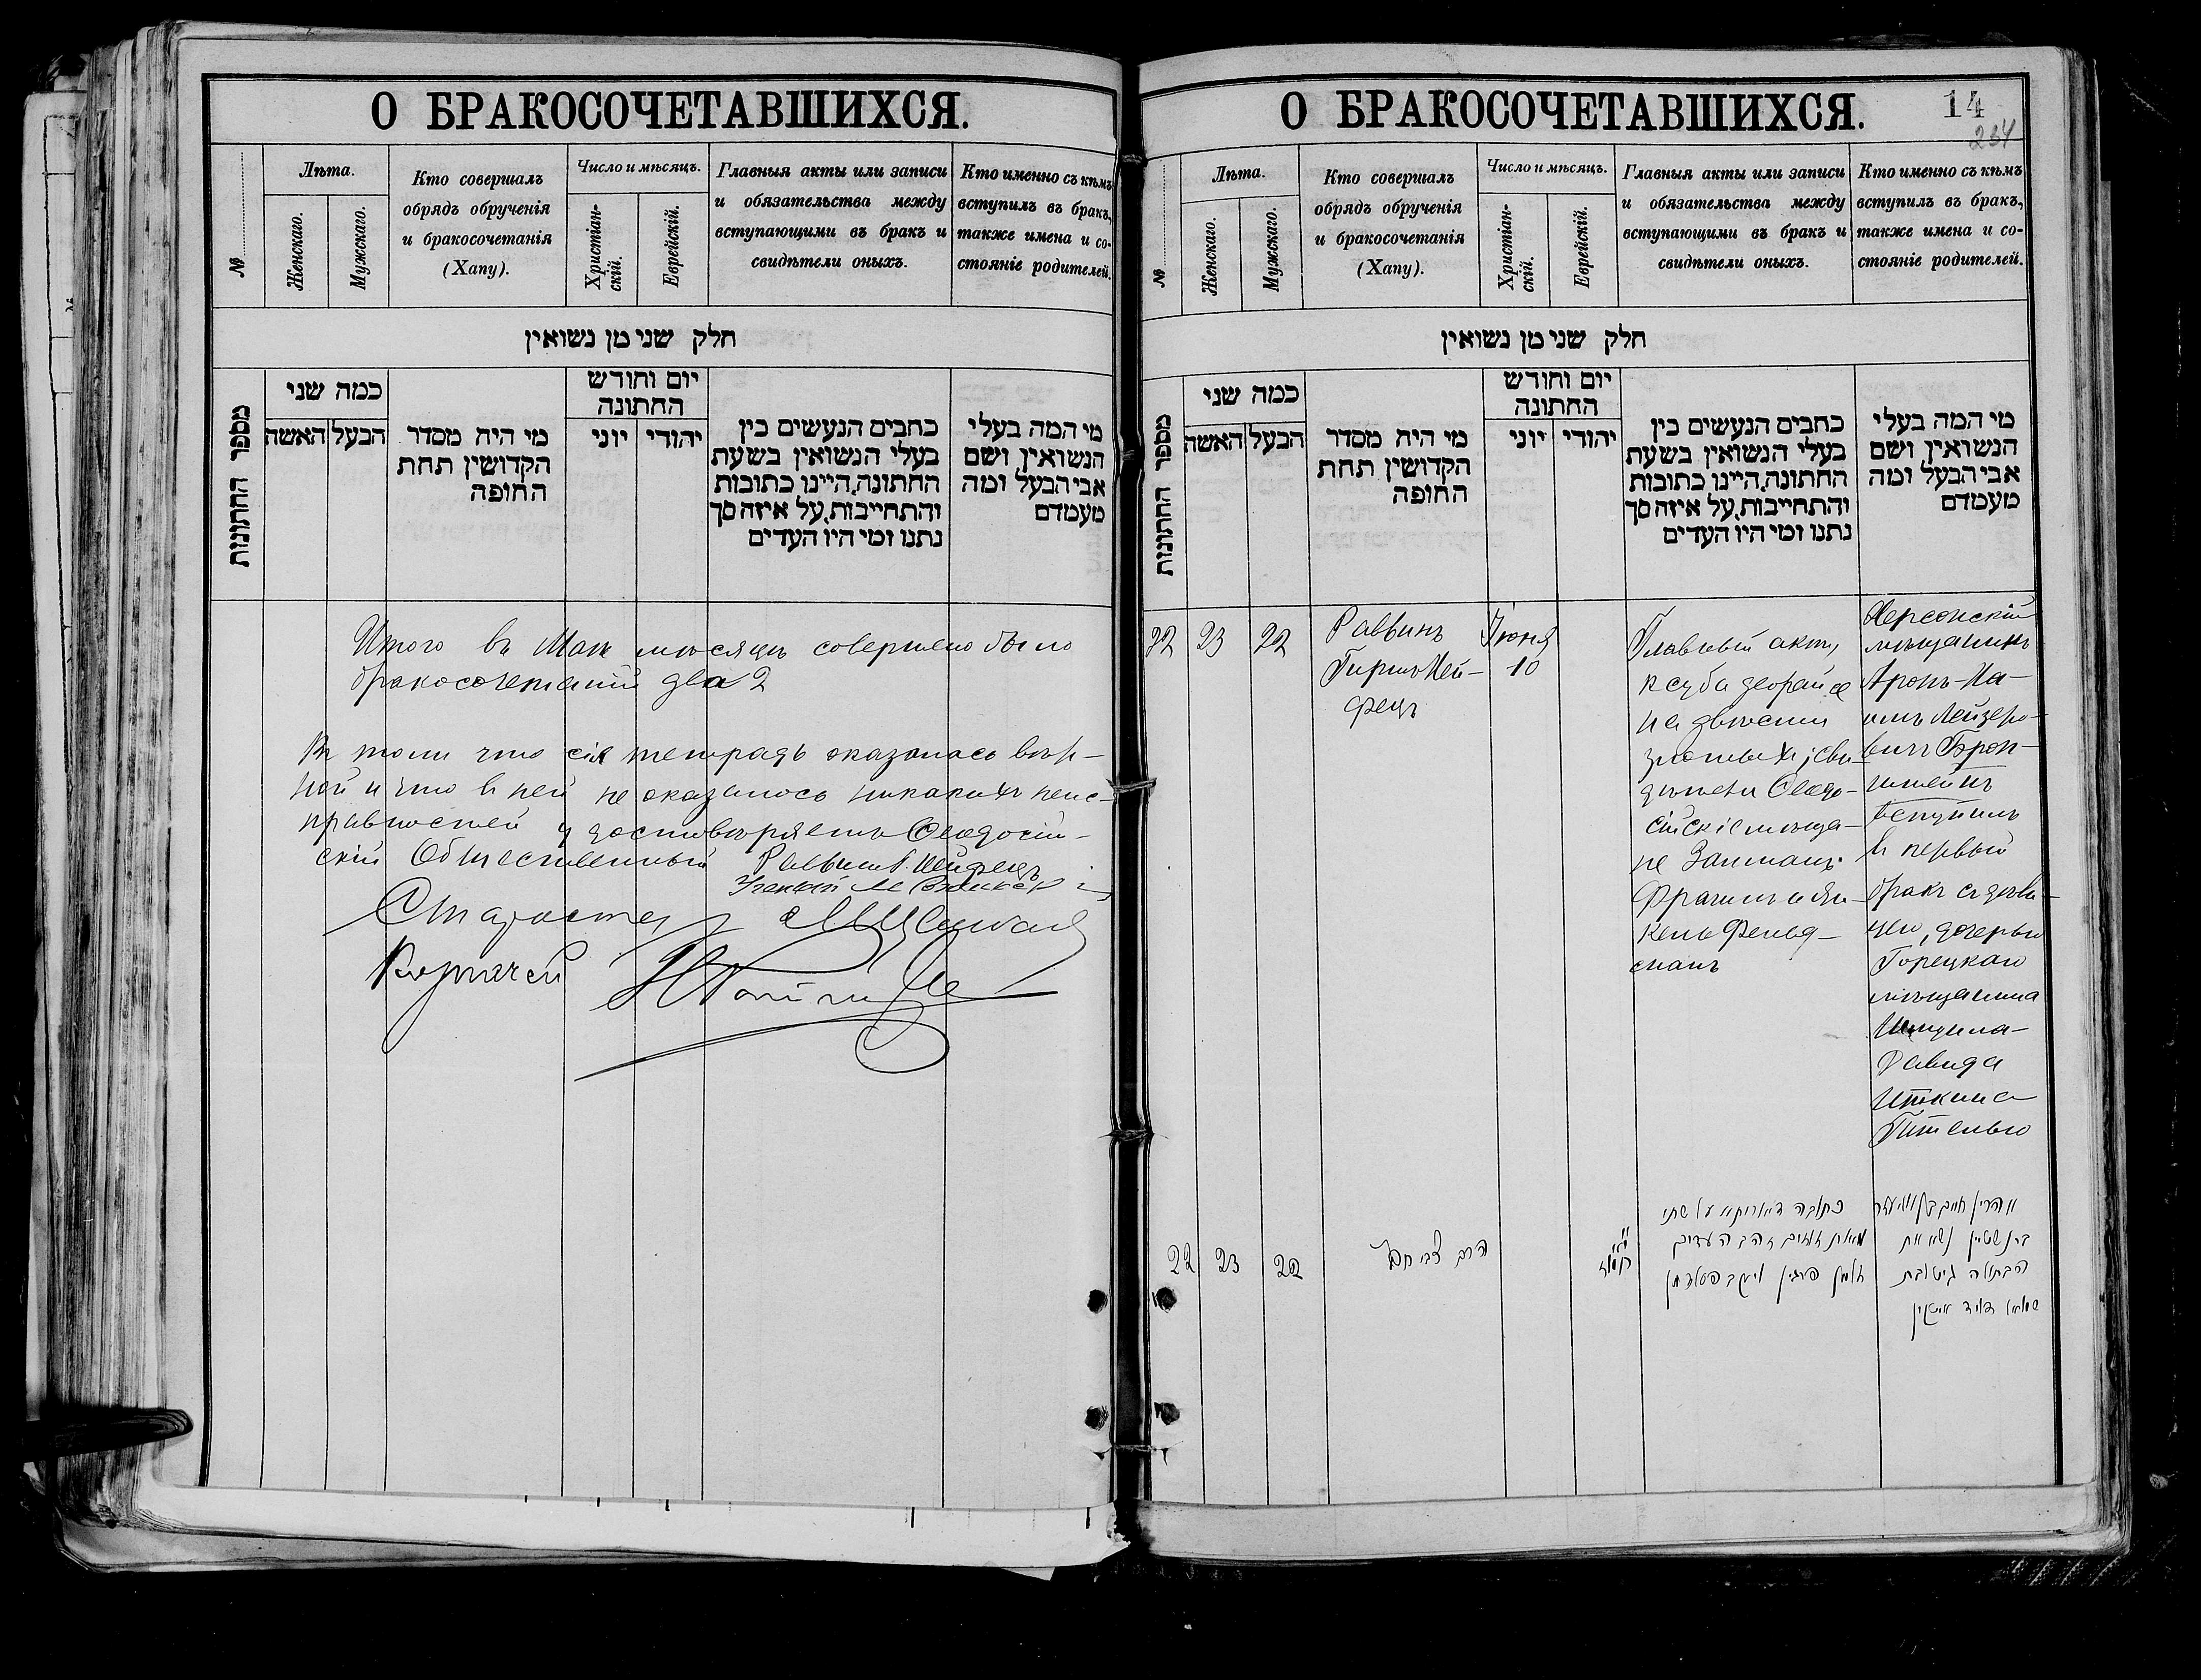 О БРАКОСОЧЕТАВШИХСЯ.
№
Лѣта.
Женскаго.
Мужскаго.
Кто совершалъ
обрядъ обрученія
и бракосочетанія
(Хапу).
Число и мѣсяцъ.
Христіан-
скій.
Еврейскій.
Главныя акты или записи
и обязательства между
вступающими въ бракъ и
свидѣтели оныхъ.
Кто именно съ кѣмъ
вступилъ въ бракъ,
также имена и со-
стояніе родителей.
חלק שני מן נשואין
מספר החתונות
כמה שני
האשה
הבעל
מי היה מסדר
הקדושין תחת
החופה
יום וחודש
החתונה
יוני
יהודי
כתבים הנעשים בין
בעלי הנשואין בשעת
החתונה, היינו כתובות
והתחייבות, על איזה סך
נתנו ומי היו העדים
מי המה בעלי
הנשואין ושם
אבי הבעל ומה
מעמדם
Итого въ Маѣ мѣсяцѣ совершено было
бракосочетаній два 2
Въ томъ что сія тетрадь оказалась вѣр-
ной и что в ней не оказалось никакихъ неис-
правностей удостовѣряетъ Ѳеодосій-
скій Общественный Раввинъ Г. Хейфецъ
Ученый
Староста
Казначей
О БРАКОСОЧЕТАВШИХСЯ.
14
234
№
Лѣта.
Женскаго.
Мужскаго.
Кто совершалъ
обрядъ обрученія
и бракосочетанія
(Хапу).
Число и мѣсяцъ.
Христіан-
скій.
Еврейскій.
Главныя акты или записи
и обязательства между
вступающими въ бракъ и
свидѣтели оныхъ.
Кто именно съ кѣмъ
вступилъ въ бракъ,
также имена и со-
стояніе родителей.
חלק שני מן נשואין
מספר החתונות
כמה שני
האשה
הבעל
מי היה מסדר
הקדושין תחת
החופה
יום וחודש
החתונה
יוני
יהודי
כתבים הנעשים בין
בעלי הנשואין בשעת
החתונה, היינו כתובות
והתחייבות, על איזה סך
נתנו ומי היו העדים
מי המה בעלי
הנשואין ושם
אבי הבעל ומה
מעמדם
22
23
22
Раввинъ
Гиршъ Хей-
фецъ
Іюня
10
Главный актъ
ксуба деорайса
на двѣсти
злотыхъ; сви-
дѣтели Ѳеодо-
сійскіе мѣща-
не Залманъ
Фрагинъ и Ян-
кель Фельд-
манъ
Херсонскій
мѣщанинъ
Аронъ-Ха-
имъ Лейзеро-
вичъ Брон-
штейнъ
вступилъ
въ первый
бракъ съ дѣви-
цею, дочерью
Горецкаго
мѣщанина
Шмуила-
Давида
Иткина
Гителью
22
23
22
הרב צבי חפץ
כתובה דאורייתא על שתי
מאות זהובים והעדים
זלמן פרגין ויעקב פעלדמן
אהרן חיים בן אליעזר
ברנשטיין נשא את
הבתולה גיטל בת
שמואל דוד איטקין